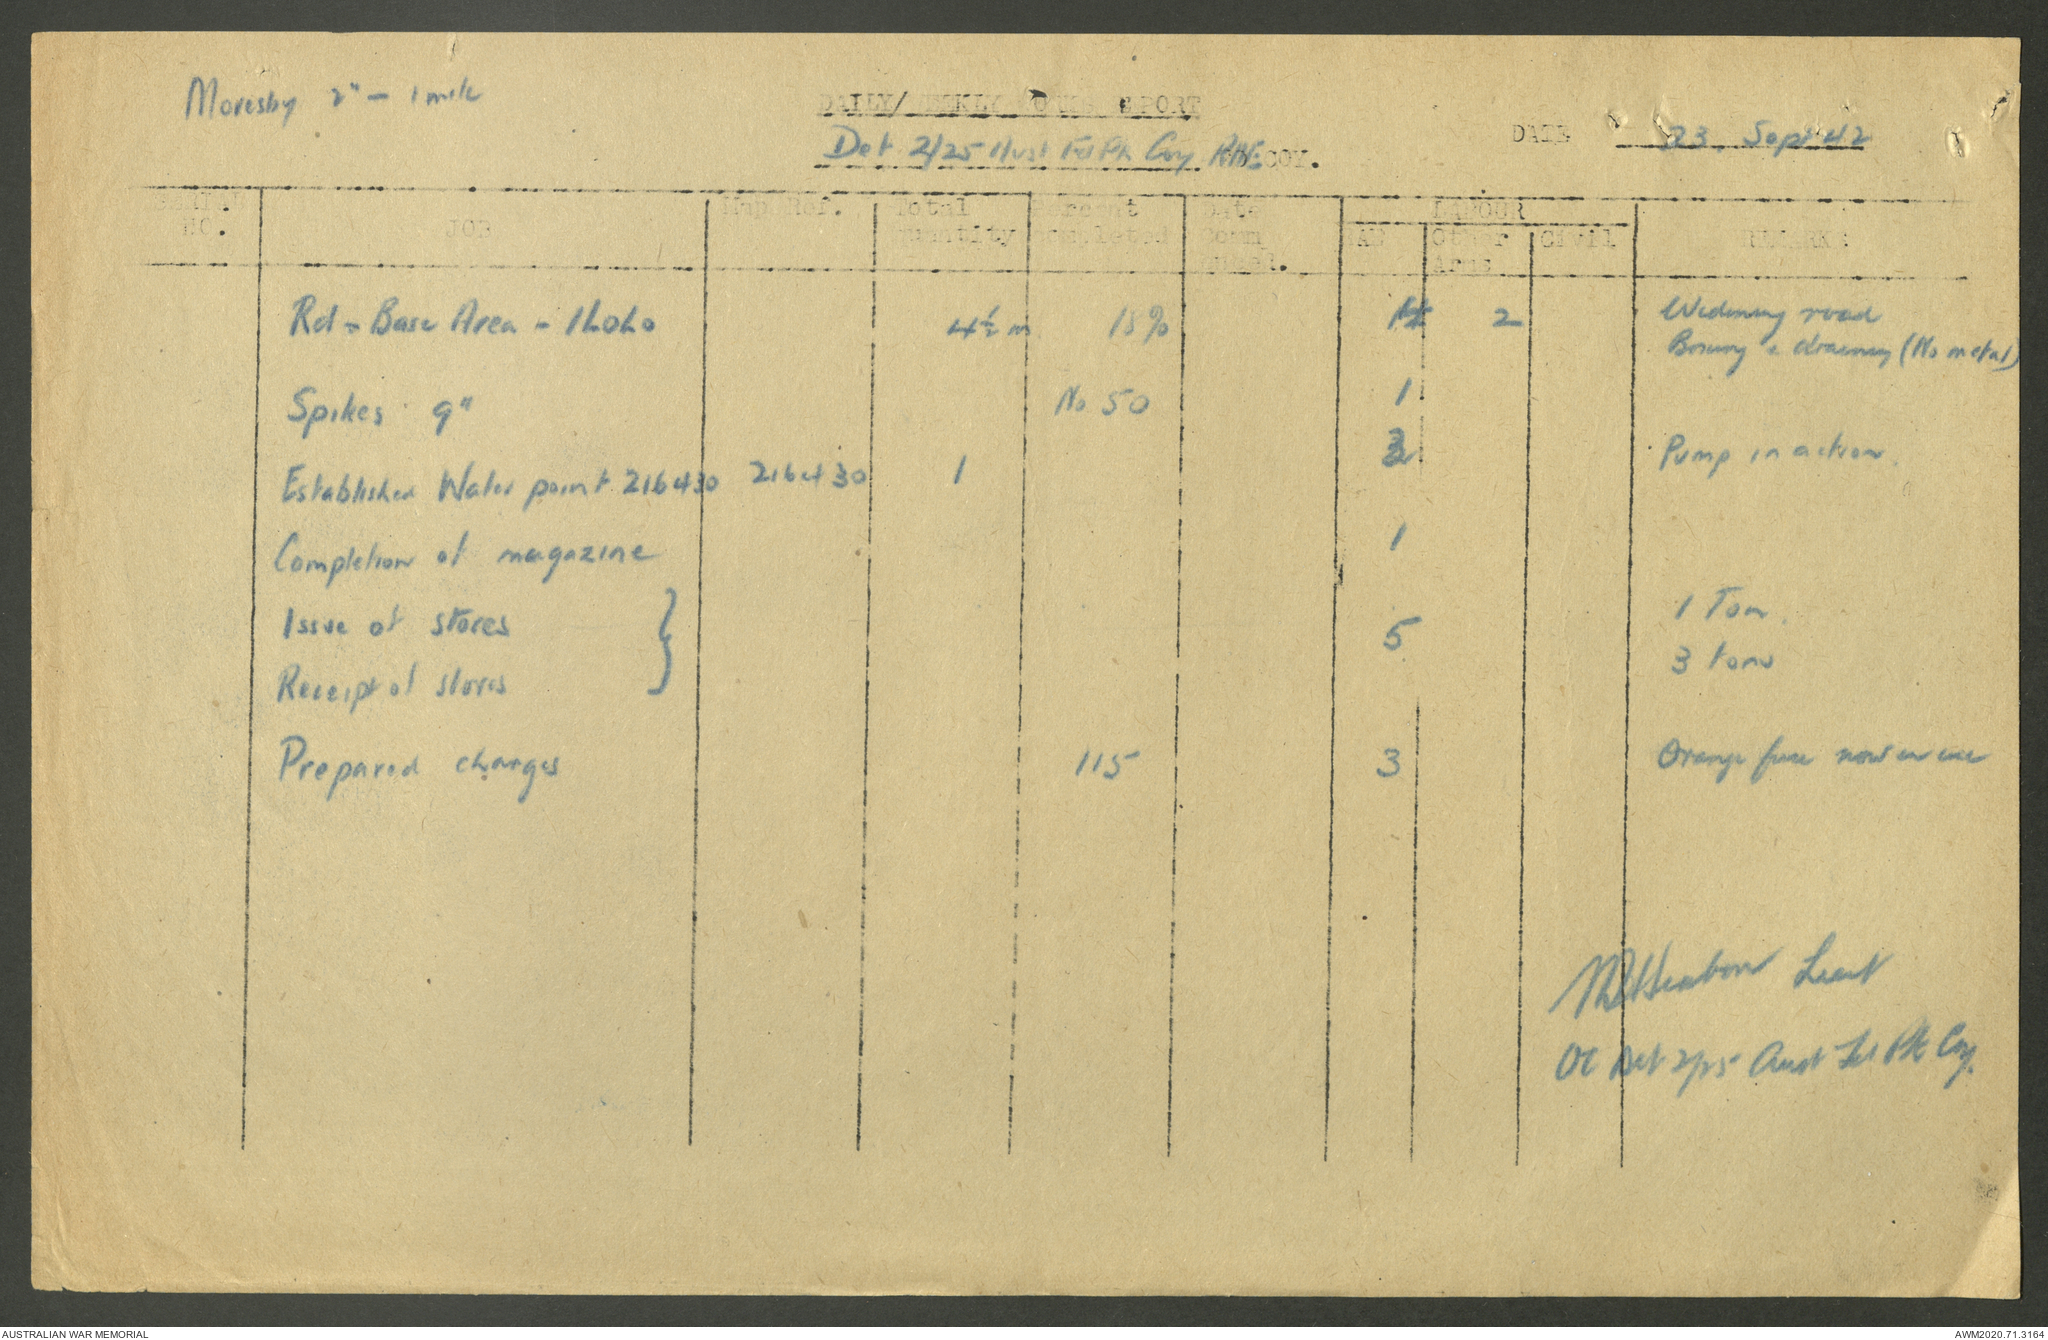 Moresby 2" - 1 mile
DAILY/WEEKLY WORKS REPORT
DATE 23. Sept 42
Det 2/25 Aust Fd Pk Coy RAE COY.
SERIAL NO.
JOB
Map Ref.
Total quantity
Percent completed
Date Comm enced.
LABOUR
RAE
Other Arms
Civil
REMARKS
Rd - Base Area - Ilolo 4½ m 15% 2 Widening road
& draining (No metal)
Spikes 9" No 50 1
Established Water point 216430 216430 1 Pump in action.
Completion of magazine 1
Issue of stores } 5 1 Ton.
Receipt of stores 3 tons
Prepared charges 115 3 Orange fuse now in use
Lieut
OC Det 2/25 Aust Fd Pk Coy.
AUSTRALIAN WAR MEMORIAL
AWM2020.71.3164